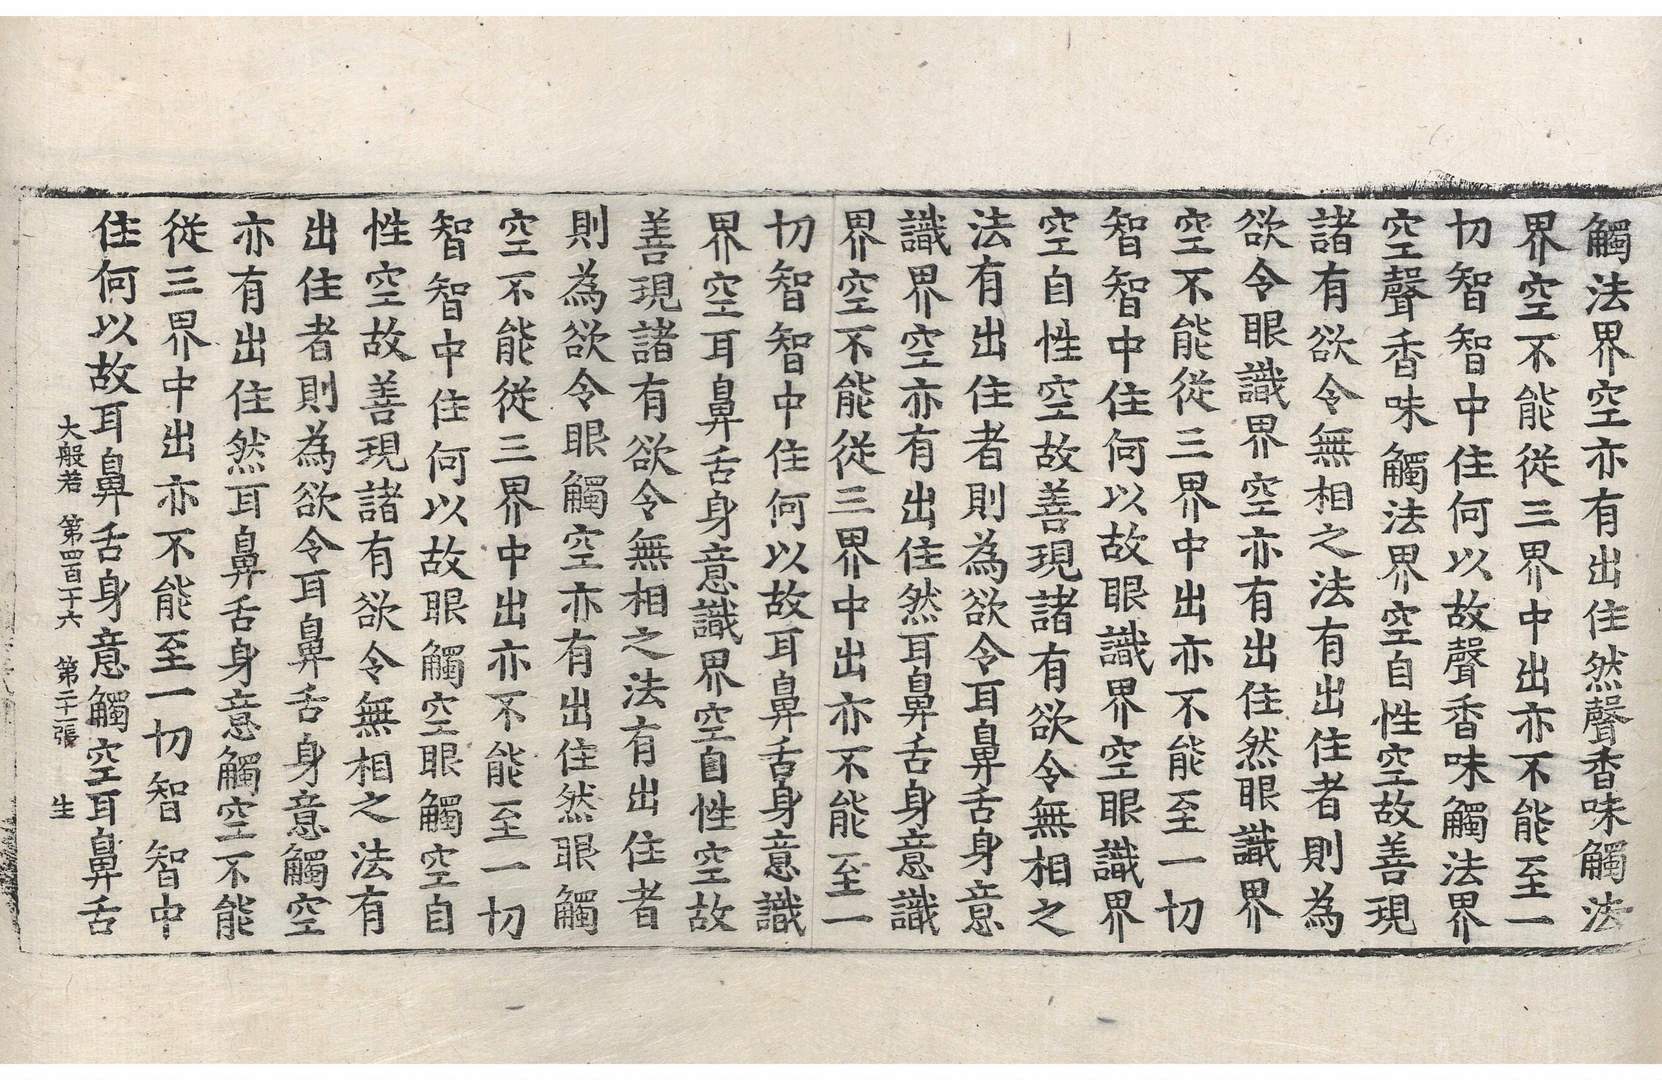 觸法界空亦有出住然聲香味觸法
界空不能從三界中出亦不能至一
切智智中住何以故聲香味觸法界
空聲香味觸法界空自性空故善現
諸有欲令無相之法有出住者則為
欲令眼識界空亦有出住然眼識界
空不能從三界中出亦不能至一切
智智中住何以故眼識界空眼識界
空自性空故善現諸有欲令無相之
法有出住者則為欲令耳鼻舌身意
識界空亦有出住然耳鼻舌身意識
界空不能從三界中出亦不能至一
切智智中住何以故耳鼻舌身意識
界空耳鼻舌身意識界空自性空故
善現諸有欲令無相之法有出住者
則為欲令眼觸空亦有出住然眼觸
空不能從三界中出亦不能至一切
智智中住何以故眼觸空眼觸空自
性空故善現諸有欲令無相之法有
出住者則為欲令耳鼻舌身意觸空
亦有出住然耳鼻舌身意觸空不能
從三界中出亦不能至一切智智中
住何以故耳鼻舌身意觸空耳鼻舌
大般若 第四百十六 第二十一張 生